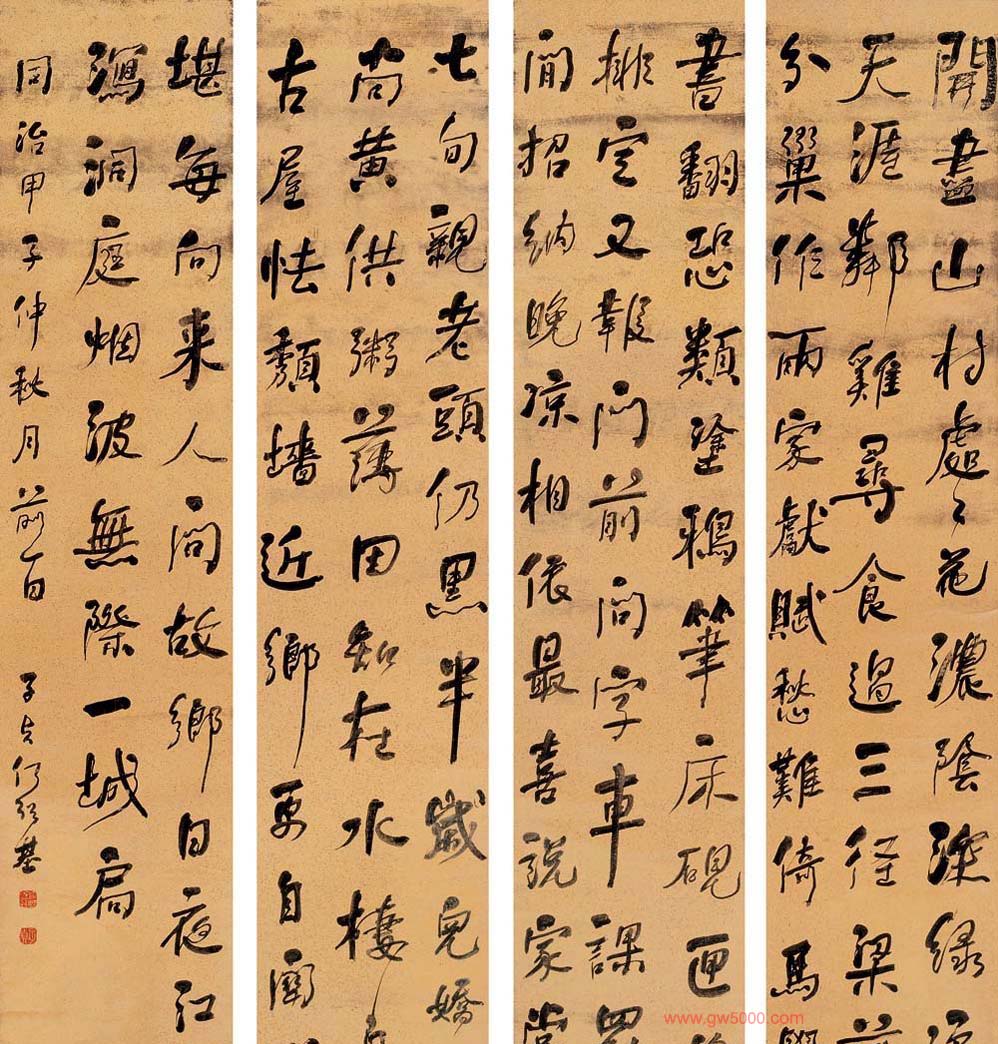 開盡山村處處花濃陰深緑
天涯鄰雞尋食過三徑梁
分巢作兩家獻賦愁難倚馬
書翻恐類塗鴉筆床硯匣
掀定又報門前問字車課
間招納晚凉相依最喜説家常
七旬親老頭仍黑半歲兒嬌
尚黄供粥薄田知在水棲
古屋怯頽墻近鄉更自
堪每向来人問故鄉日夜江
瀉洞庭烟波無際一城扃
同治甲子仲秋月前一日
子貞何紹基
www.gw5000.com